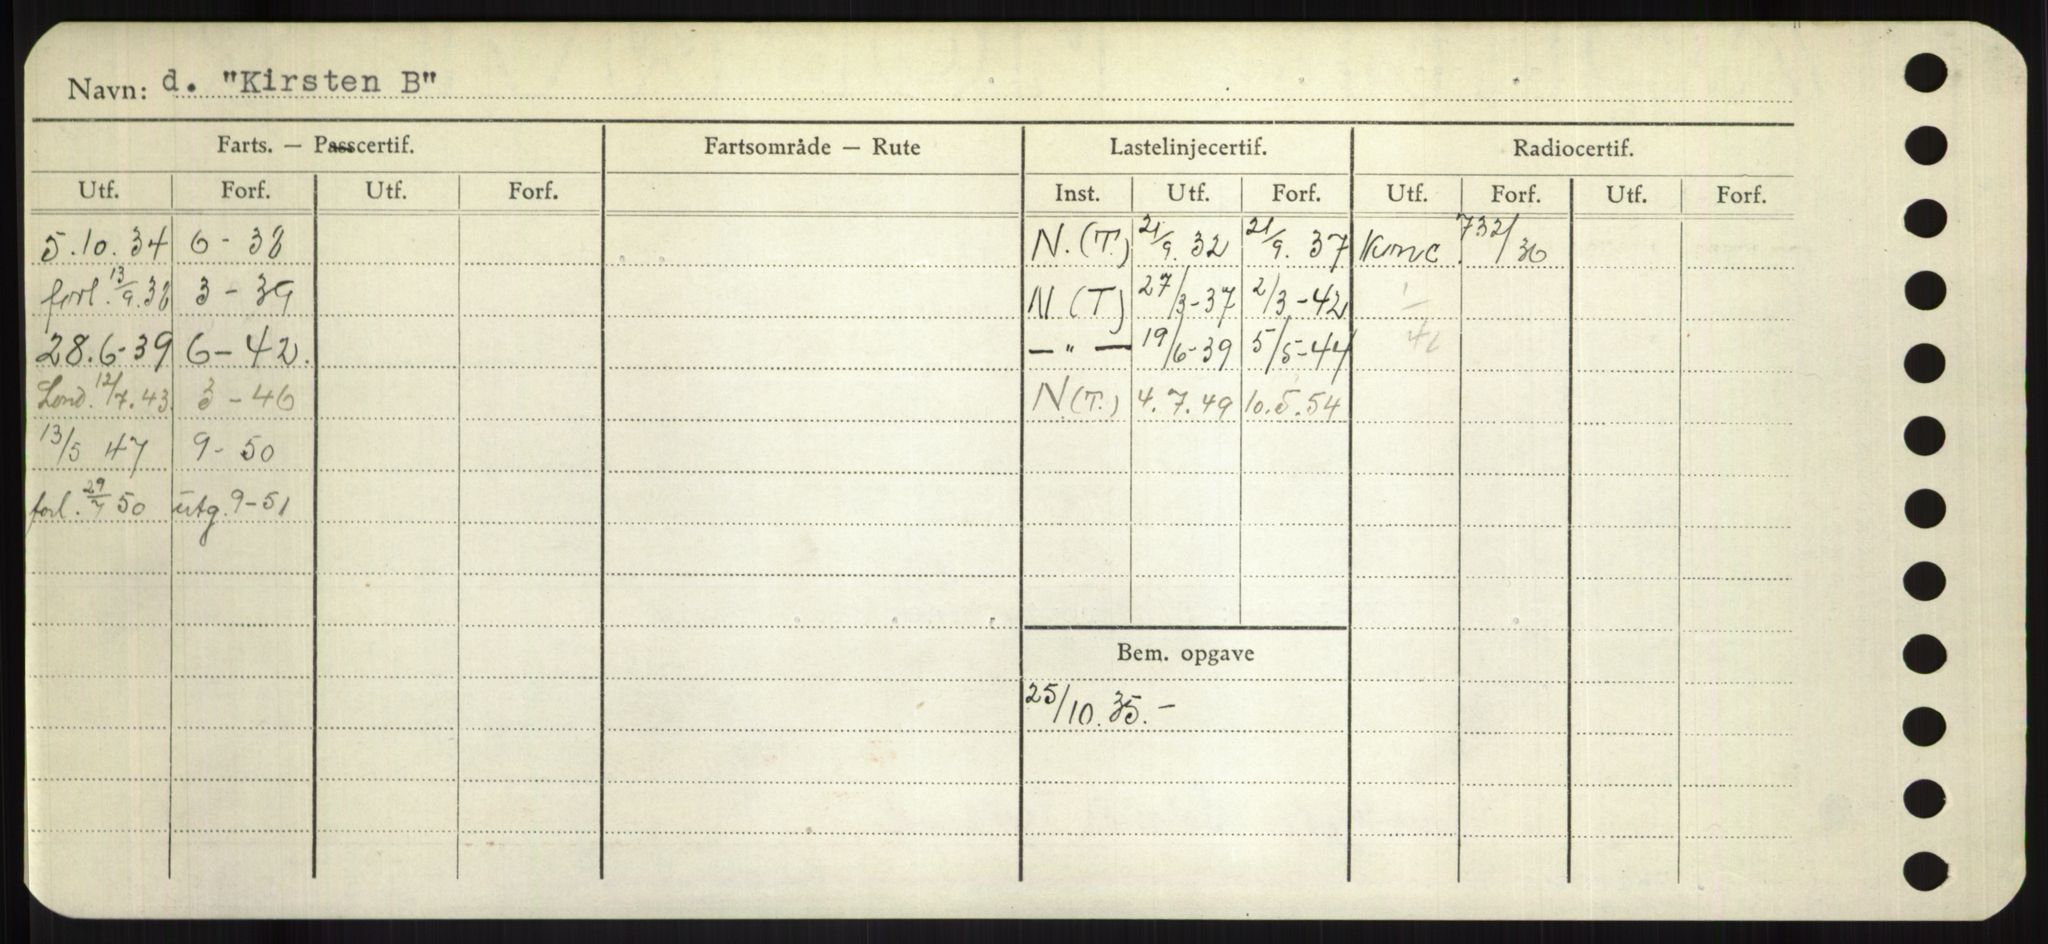 Navn: d. "Kirsten B"
Farts. — Passcertif. Fartsområde — Rute Lastelinjecertif. Radiocertif.
Utf. Forf. Utf. Forf. Inst. Utf. Forf. Utf. Forf. Utf. Forf.
5.10.34 6-38 N.(T.) 21/9.32 21/9.37 732/36
forl. 13/9.38 3-39 N.(T) 27/3-37 2/3-42
28.6-39 6-42. —"— 19/6-39 5/5-44
Lond. 12/7.43 3-46 N(T.) 4.7.49 10.5.54
13/5 47 9-50
forl. 29/7 50 utg. 9-51
Bem. opgave
25/10.35.-